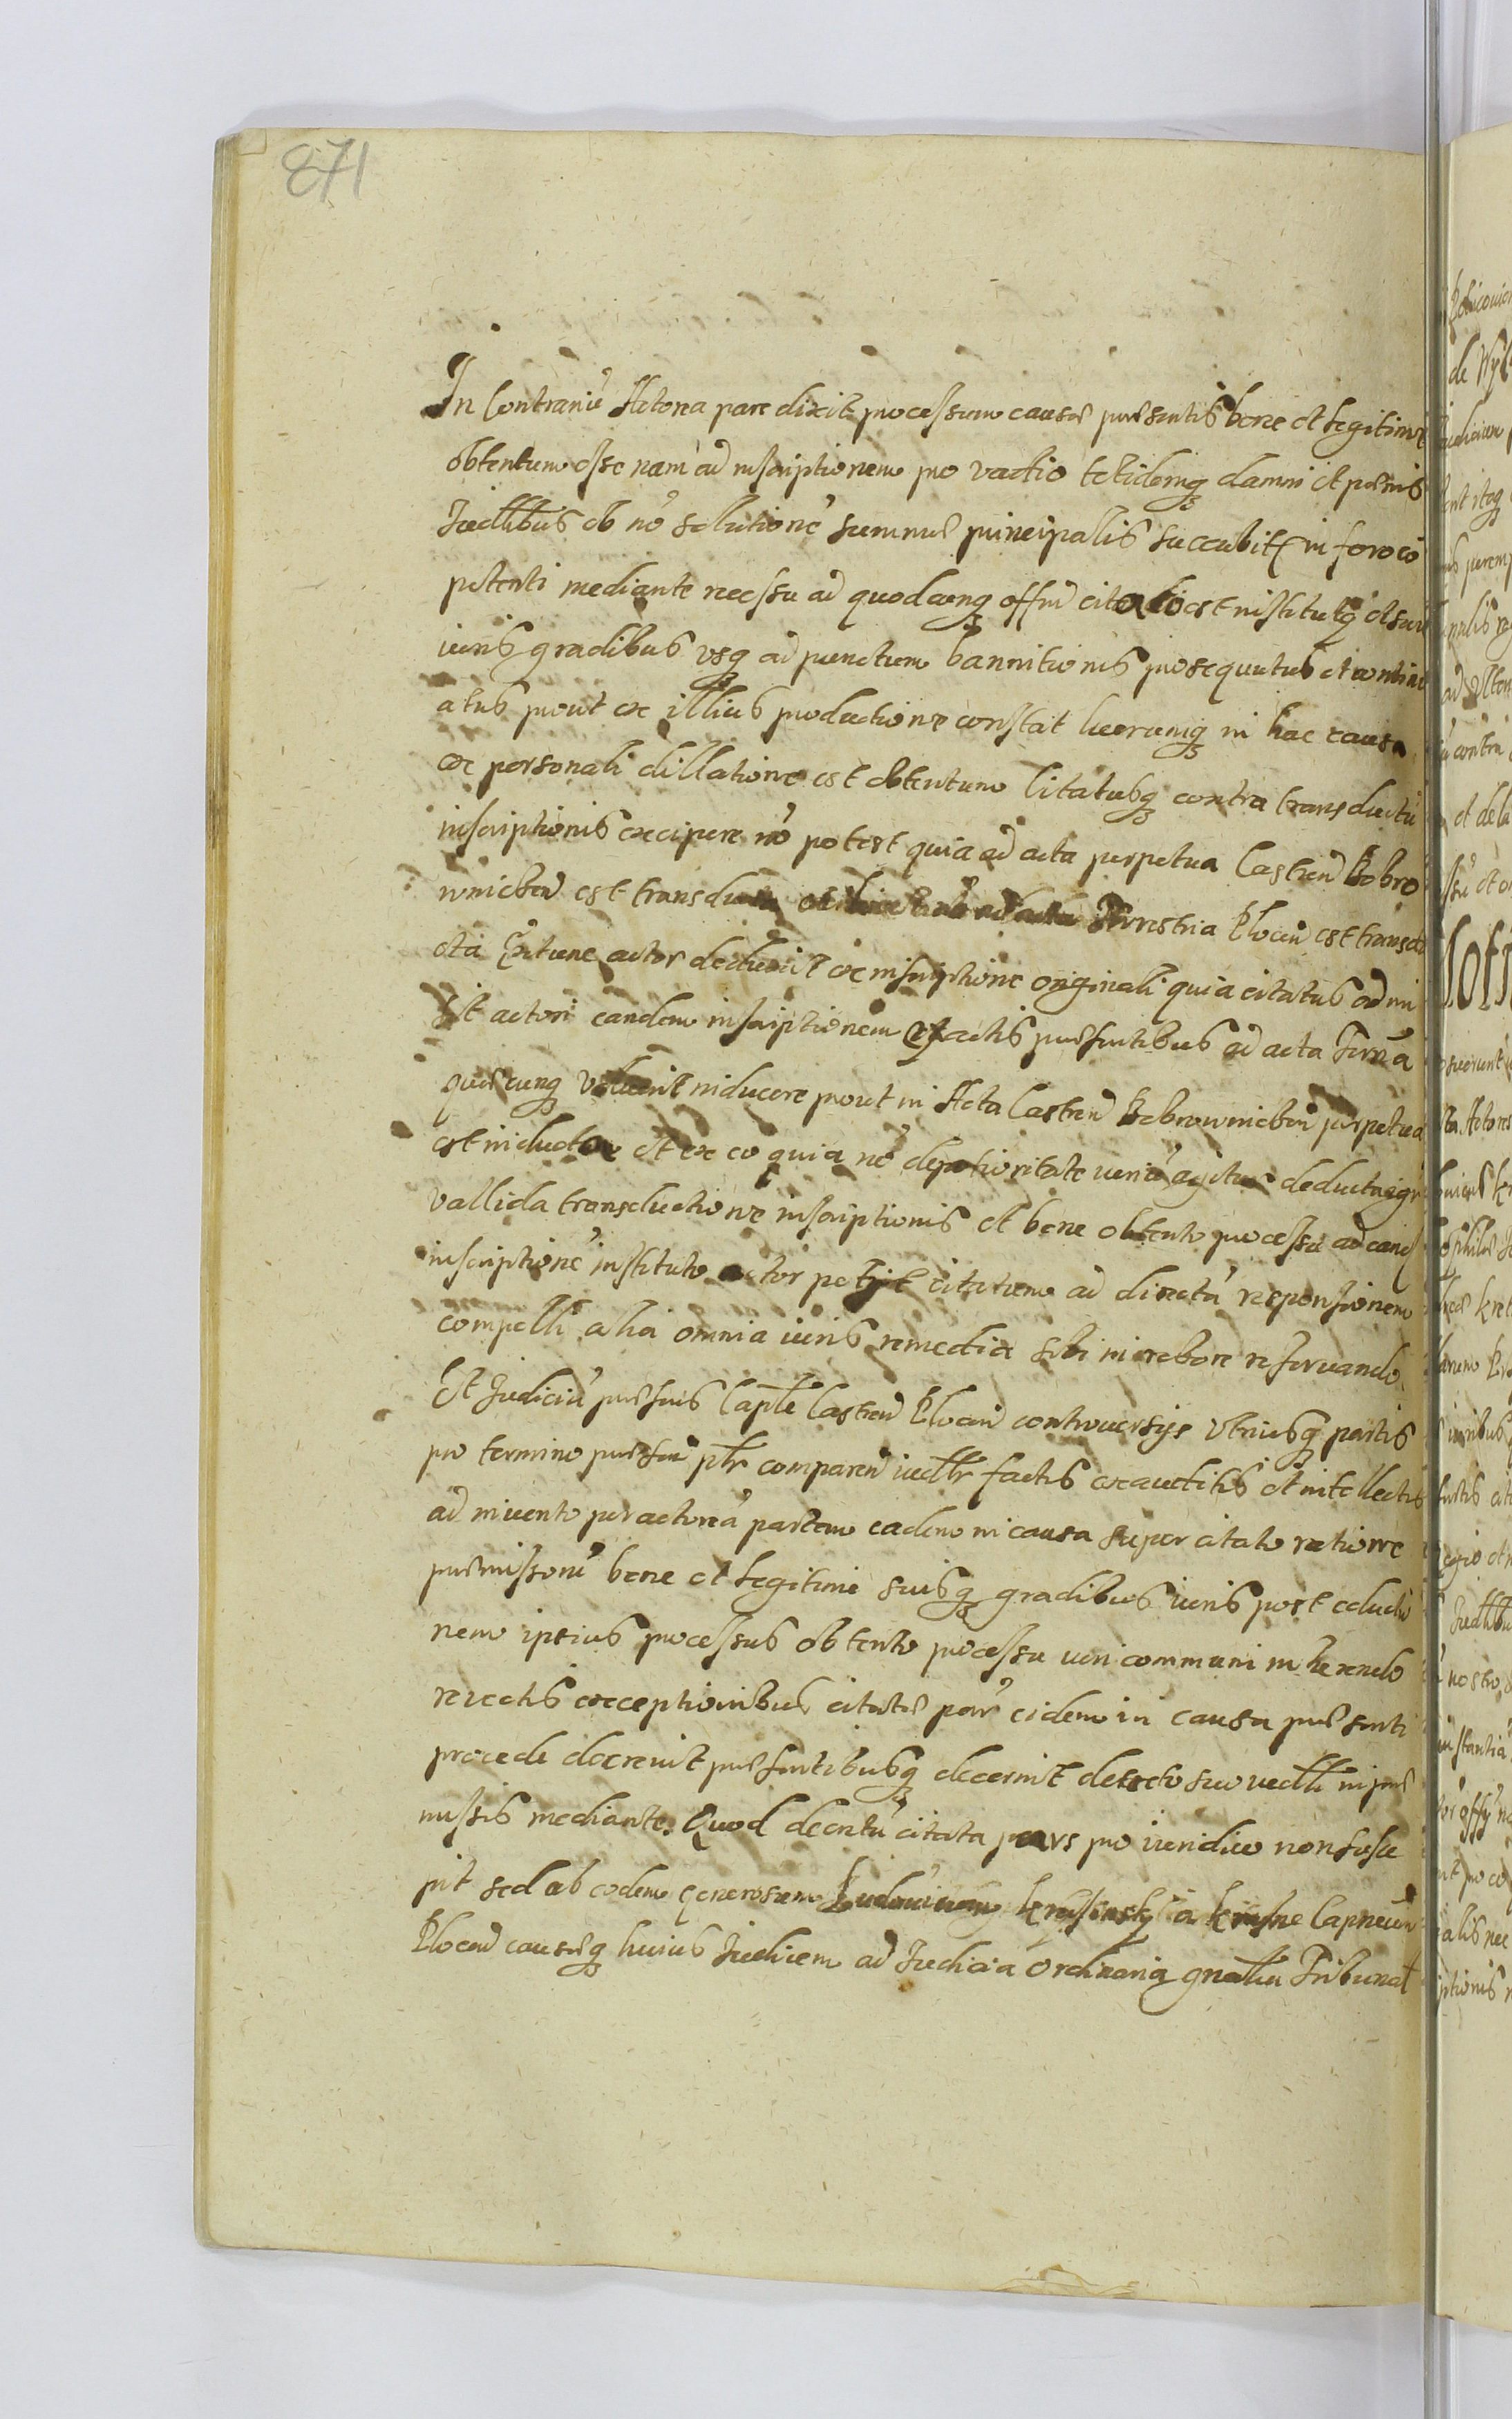 871
In Contrariu Actorea pars dixit processum causæ præsentis bene et legitime
obtentum esse nam ad inscriptionem pro vadio totidemq damni et pœnis
Iudlibus ob nō solutionē summæ principalis succubitis in foro cō
petenti mediante recessu ad quodcunq offm citatio est institutq et suis
iuris gradibus vsq ad punctum bannitionis prosequutus et continu
atus prout ex illius productione constat lucrumq in hac causa
ex personali dillatione est obtentum Citatusq contra transductu
inscriptionis excipere nō potest quia ad acta perpetua Castren Bobro
wnicken est transducta Terrestria Plocen est transdu
cta Extunc actor deduxit ex inscriptione originali quia citatus admi
sit actori eandem inscriptionem ex actis præsentibus ad acta Terrea
quæcunq voluerit inducere prout in Acta Castren Bobrownicken perpetua
est inducta et ex eo quia nō de prioritate iuriū agitur deducta igr
vallida transductione inscriptionis et bene obtento processu ad eand
inscriptionē instituto actor petijt citatum ad directā responsionem
compelli alia omnia iuris remedia sibi in robore reseruando
Et Iudiciū præsens Caple Castren Plocen controuersijs vtriusq partis
pro termino præsen plr comparen iudllr factis exauditis et intellectis
adinuento per actoreā partem eadem in causa super citato ratione
præmissorū bene et legitime suisq gradibus iuris post eductio
nem ipsius processus obtento processu iuri communi inherendo
reiectis exceptionibus citatæ par eidem in causa præsenti
procede decreuit præsentibusq decernit decreto suo iudlli in præ
missis mediante. Quod decretū citata pars pro iuridico non susce
pit sed ab eodem Generosum Ludouicum Krasinsky a Krasne Capneum
Plocen causæq huius Iudicem ad Iudicia Ordinaria gnalia Tribunal